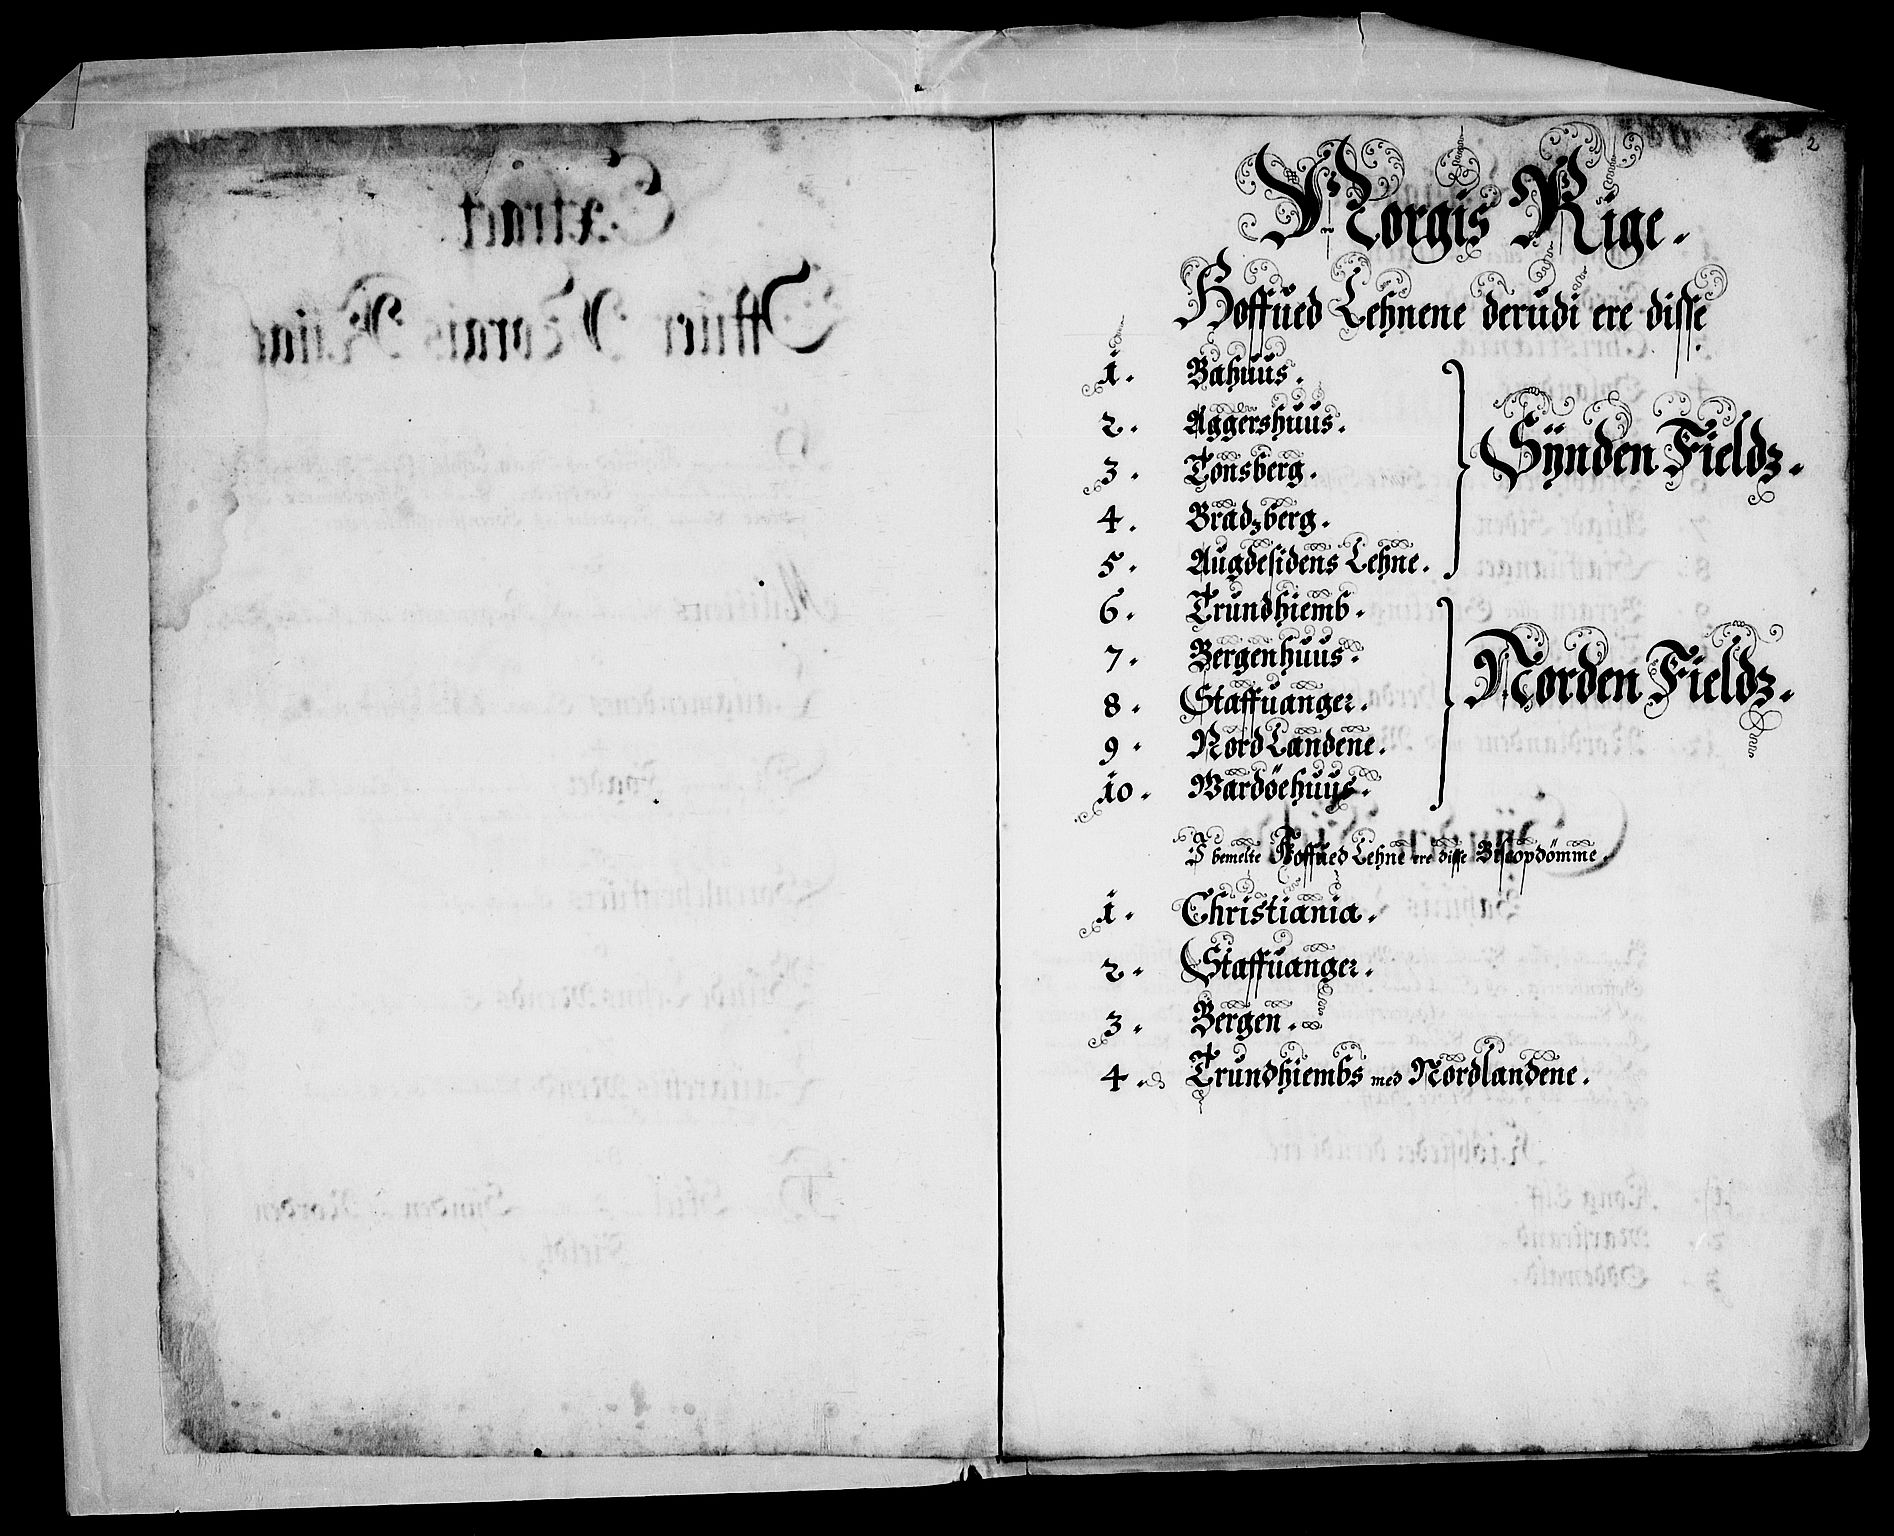 2
Norgis Rige.
Hoffued Lehnene derudi ere disse
1. Bahuus.
2. Aggershuus.
3. Tonsberg.
4. Bradzberg.
5. Augdesidens Lehne.
Synden Fieldz.
6. Trundhiemb.
7. Bergenhuus.
8. Staffuanger.
9. NordLandene.
10. Wardöehuus.
Norden Fieldz.
I bemelte Hoffued Lehne ere disse Biscopdömme.
1. Christiania.
2. Staffuanger.
3. Bergen.
4. Trundhiembs med Nordlandene.